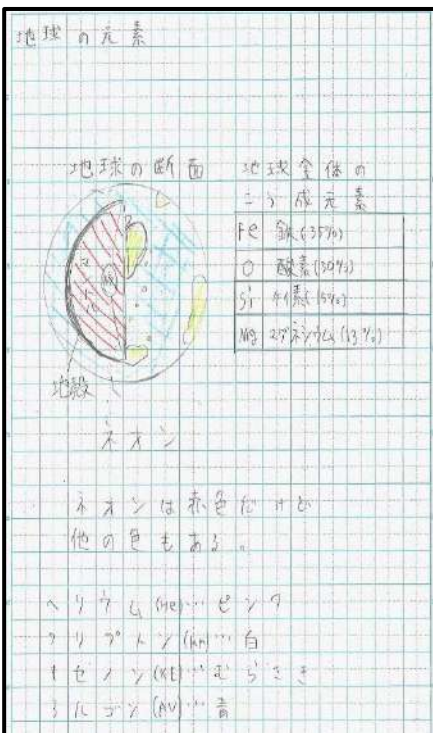 地球の元素
地球の断面
地球全体の
こう成元素
Fe 鉄(35%)
O 酸素(30%)
Si ケイ素(15%)
Mg マグネシウム(13%)
マントル
地殻
ネオン
ネオンは赤色だけど
他の色もある。
ヘリウム(He)…ピンク
クリプトン(Kr)…白
キセノン(XE)…むらさき
アルゴン(Ar)…青